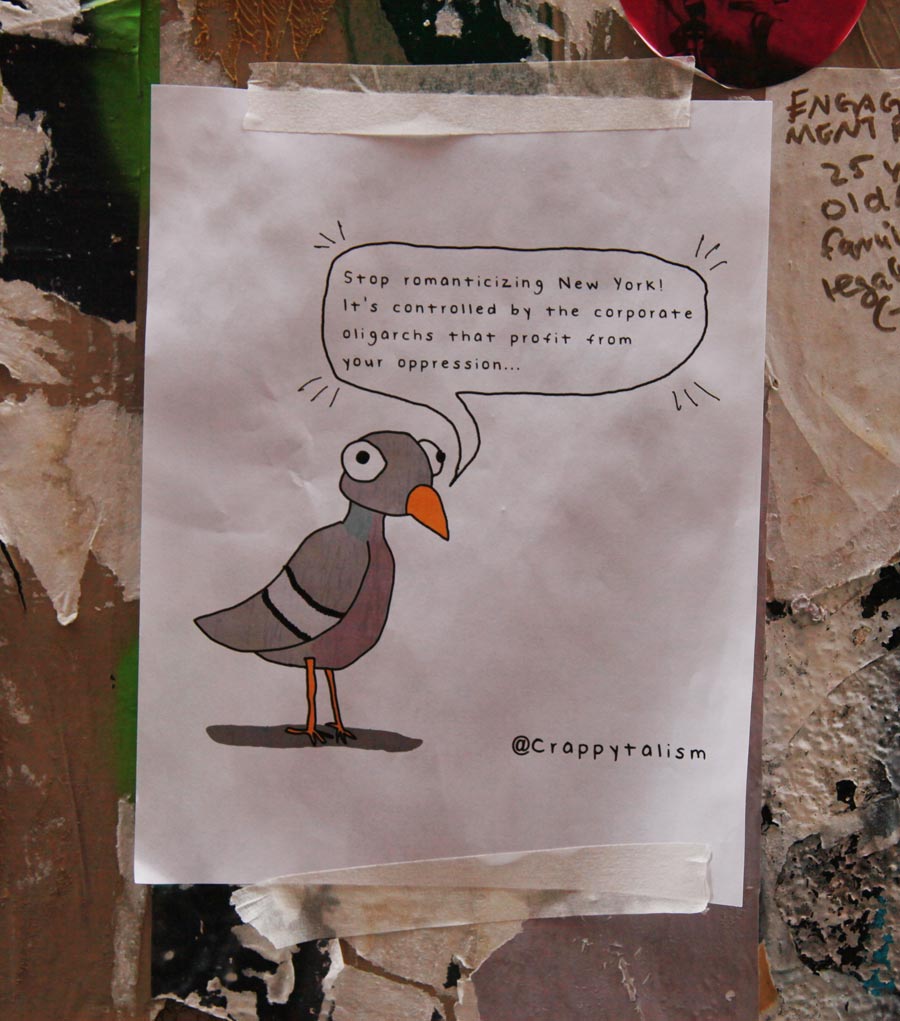 Stop romanticizing New York!
It's controlled by the corporate
oligarchs that profit from
your oppression...
@Crappytalism
25
old